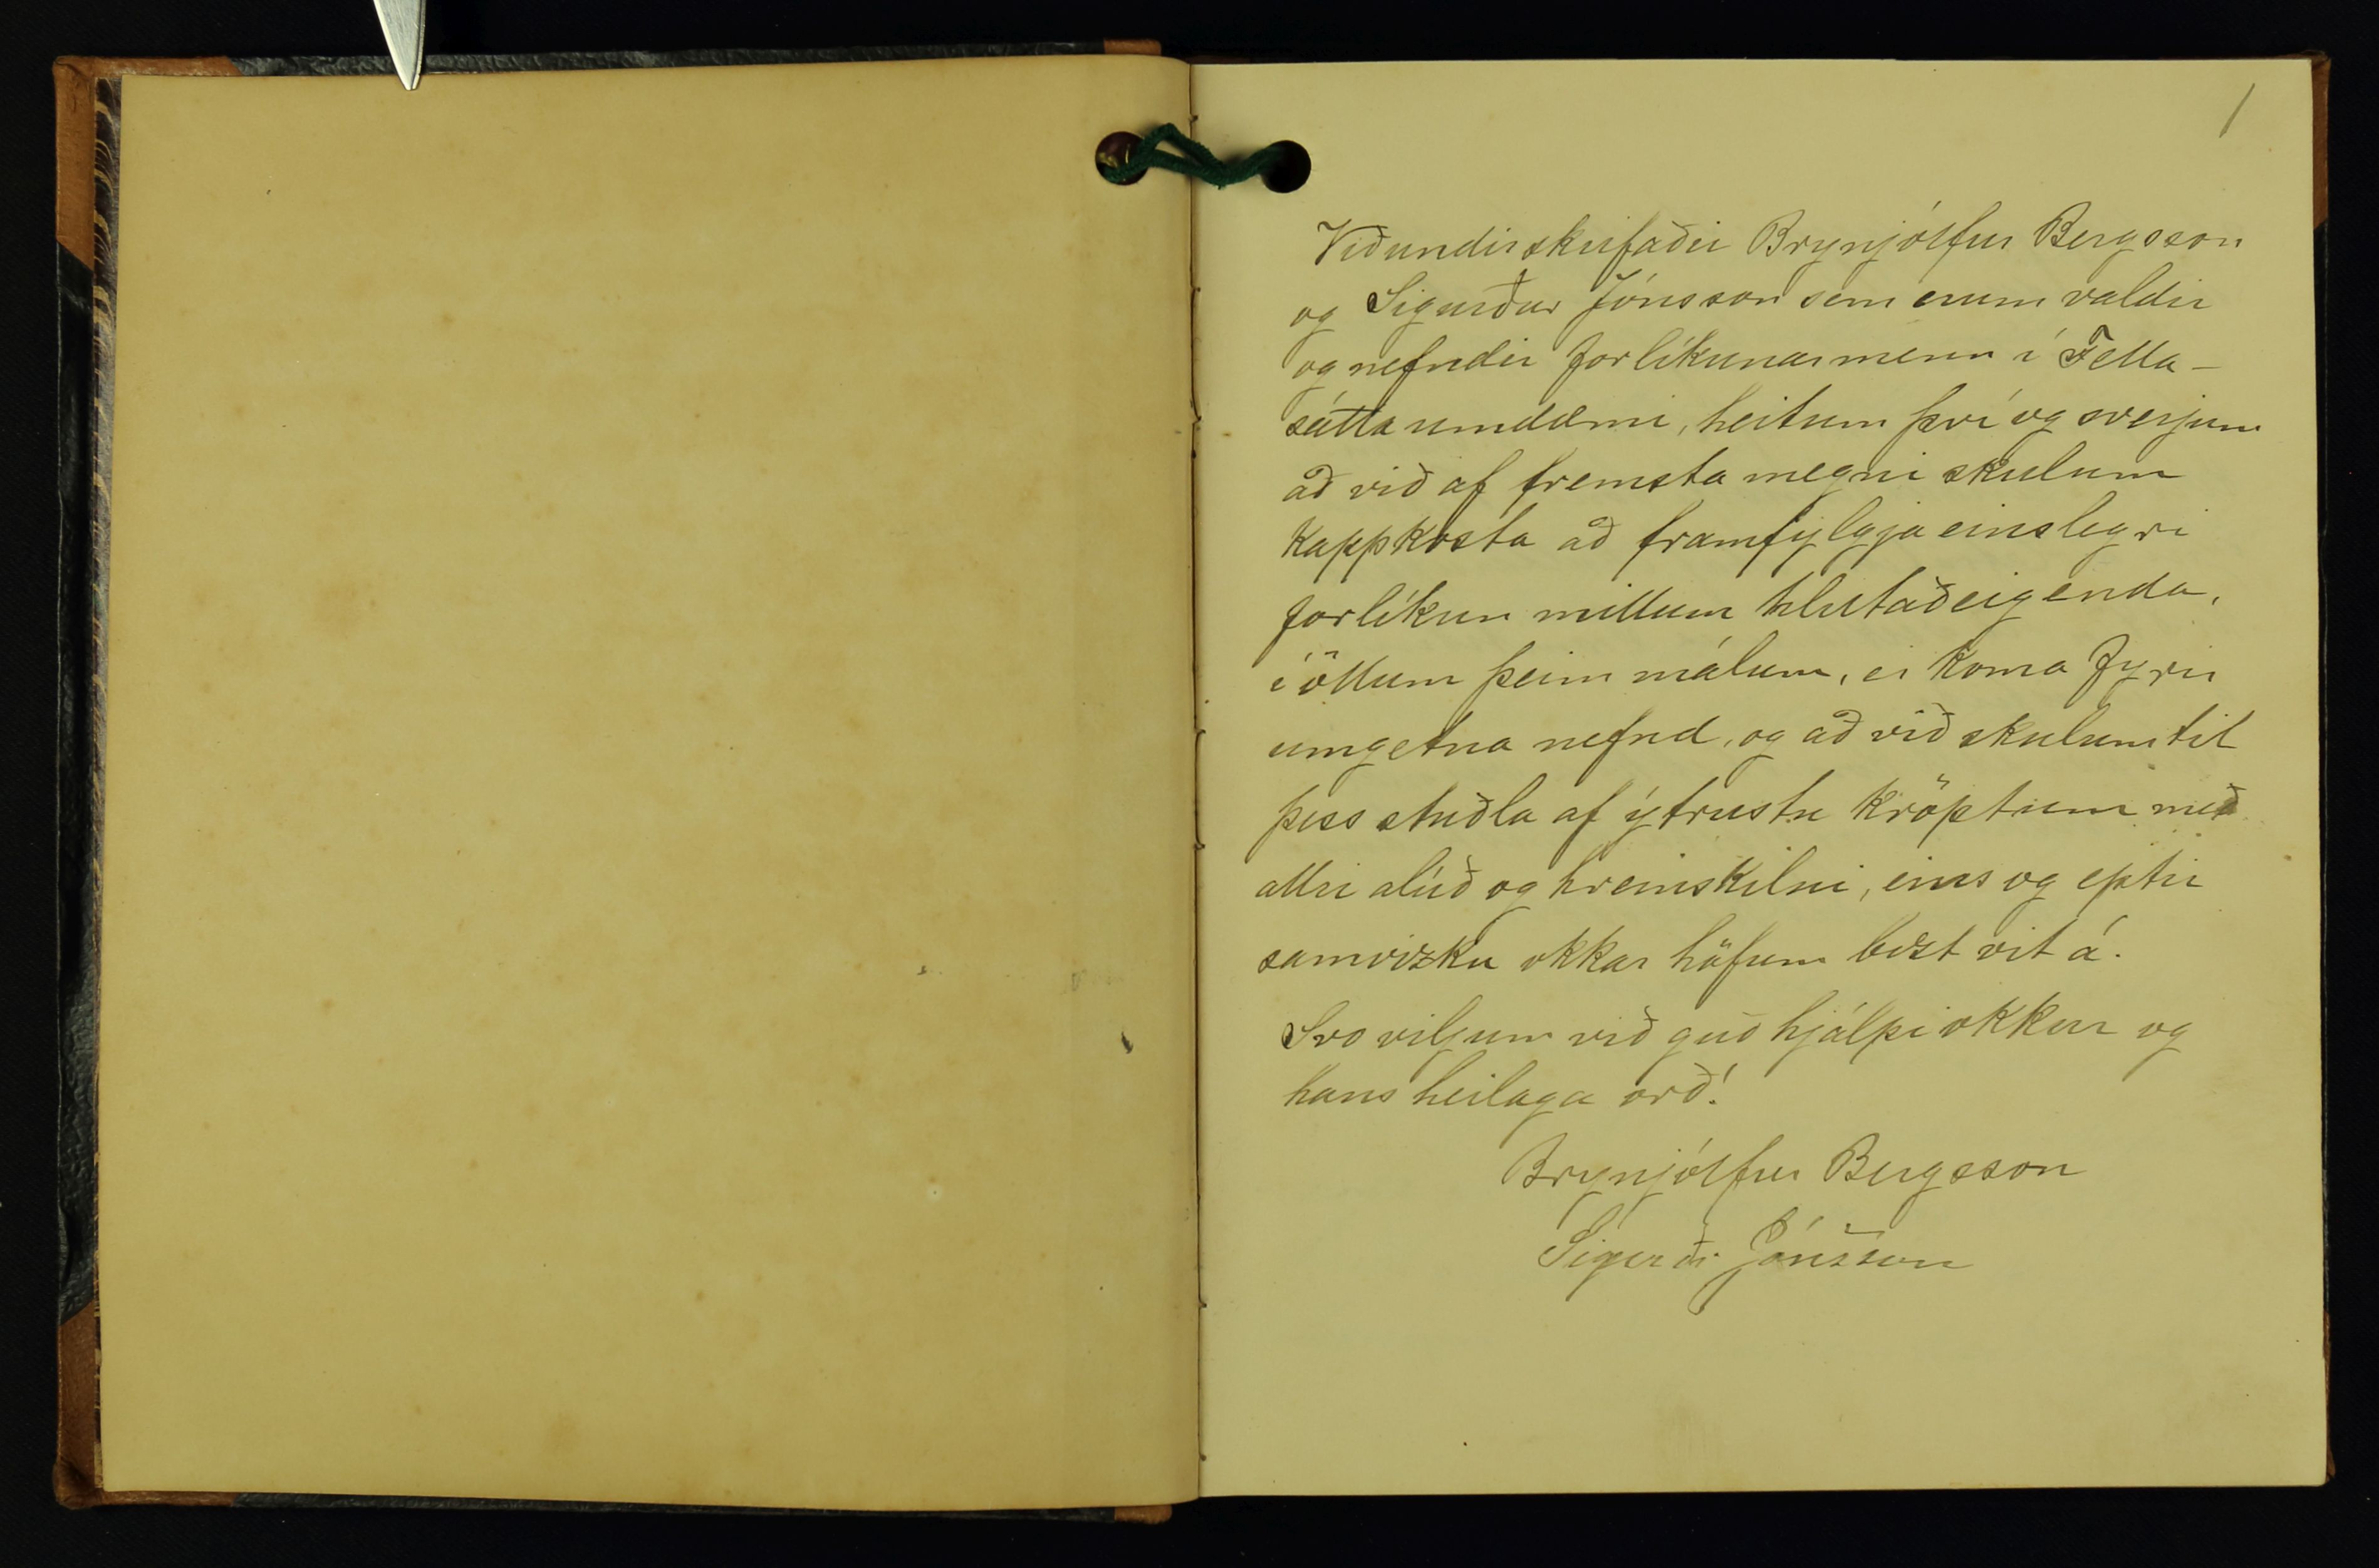 1
Viðundirskrifaðir Brynjólfur Bergsson
og Sigurður Jónsson sem erum valdir
og nefndir forlíkunarmenn í Fella-
sáttaumdæmi, heitum því og sverjum
að við af fremsta megni skulum
kappkosta að framfylgja einslegri
forlíkun millum hlutaðeigenda,
í öllum þeim málum, er koma fyrir
umgetna nefnd, og að við skulum til
þess stuðla af ýtrustu kröptum með
allri alúð og hreinskilni, eins og eptir
samvizku okkar höfum bezt vit á.
Svo viljum við guð hjálpi okkur og
hans heilaga orð!
Brynjólfur Bergsson
Sigurðr Jónsson